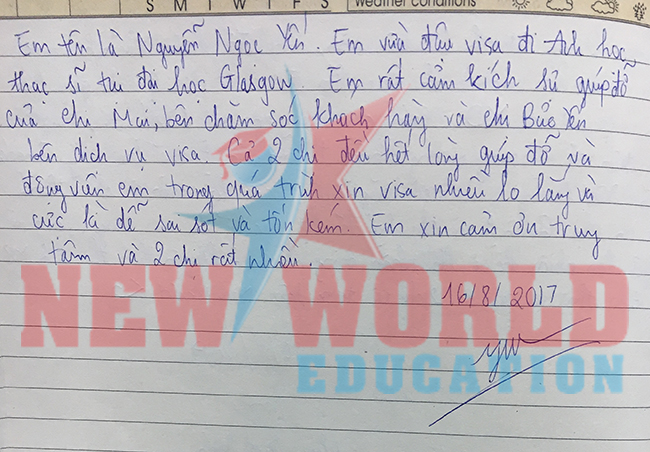 S M T W T F S Weather conditions
Em tên là Nguyễn Ngọc Yến. Em vừa đậu visa đi Anh học
thạc sĩ tại đại học Glasgow. Em rất cảm kích sự giúp đỡ
của chị Mai, bên chăm sóc khách hàng và chị Bảo Yên
bên dịch vụ visa. Cả 2 chị đều hết lòng giúp đỡ và
động viên em trong quá trình xin visa nhiều lo lắng và
cực kì dễ sai sót và tốn kém. Em xin cảm ơn trung
tâm và 2 chị rất nhiều.
16/8/2017
NEW WORLD
EDUCATION